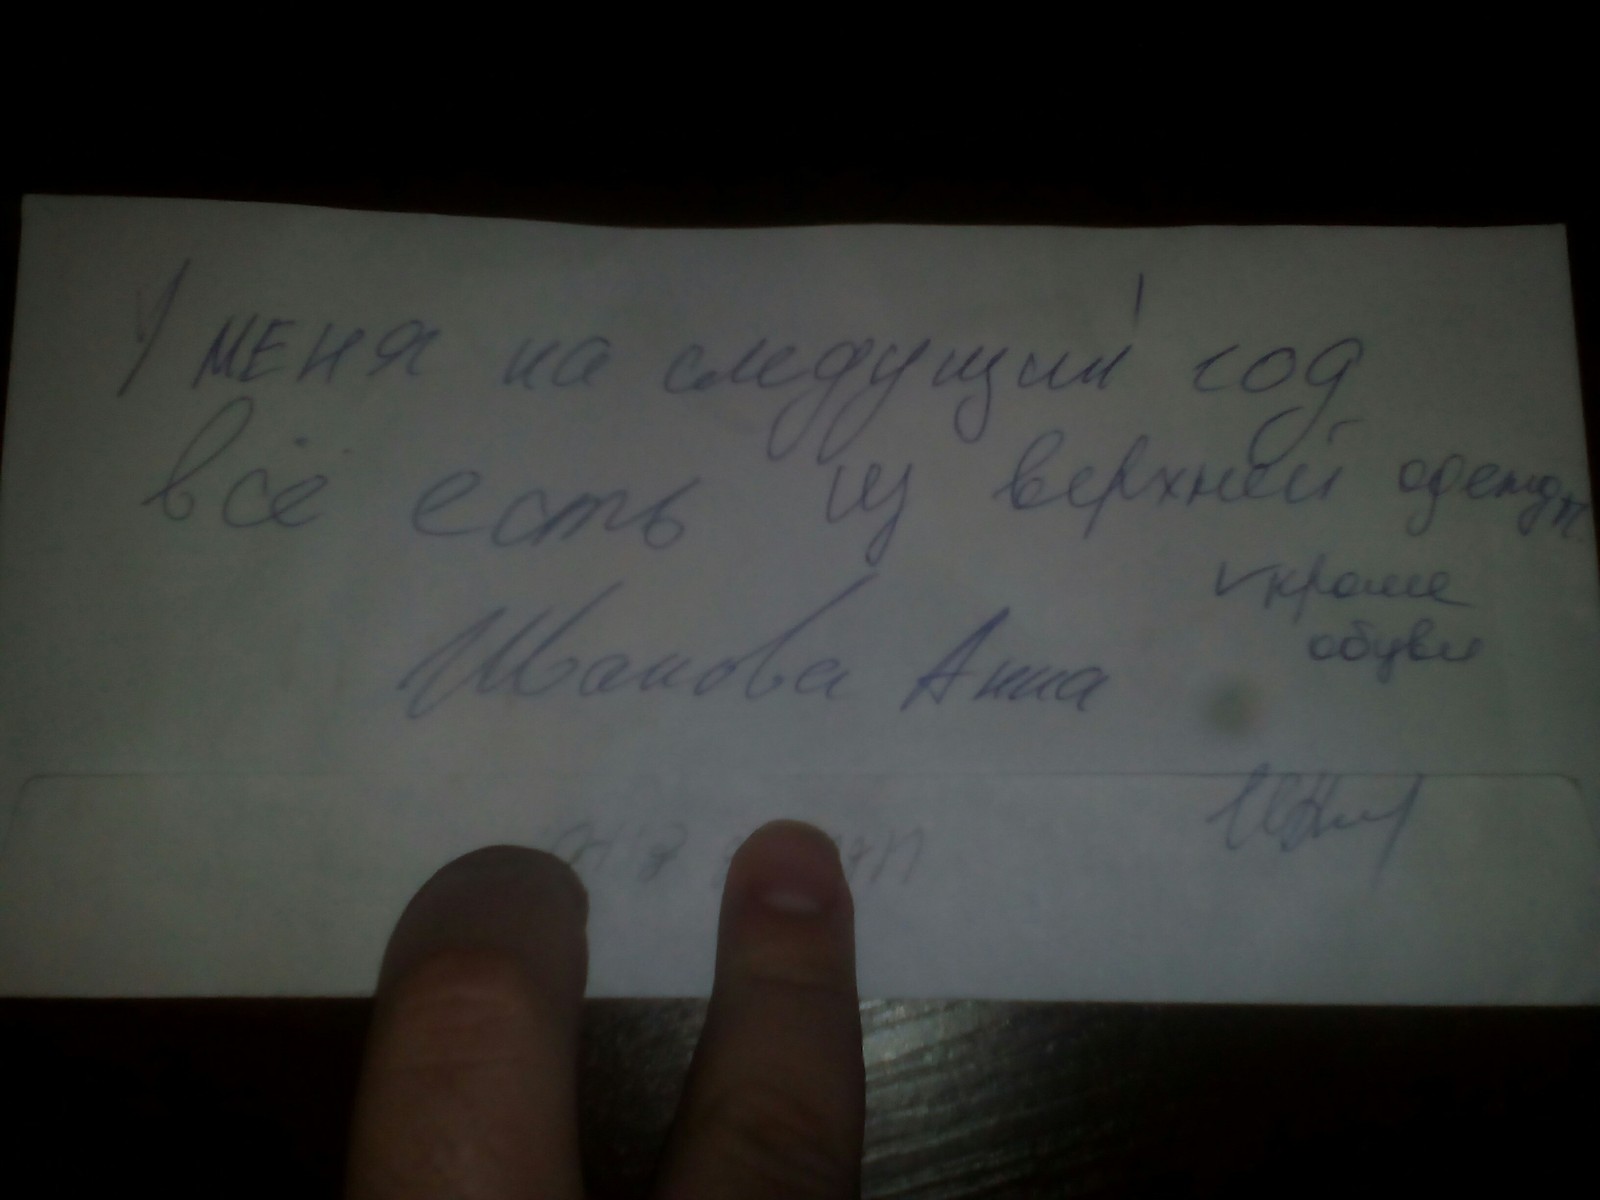 У меня на следущий год
всё есть из верхней одежды
кроме
обуви
Иванова Анна